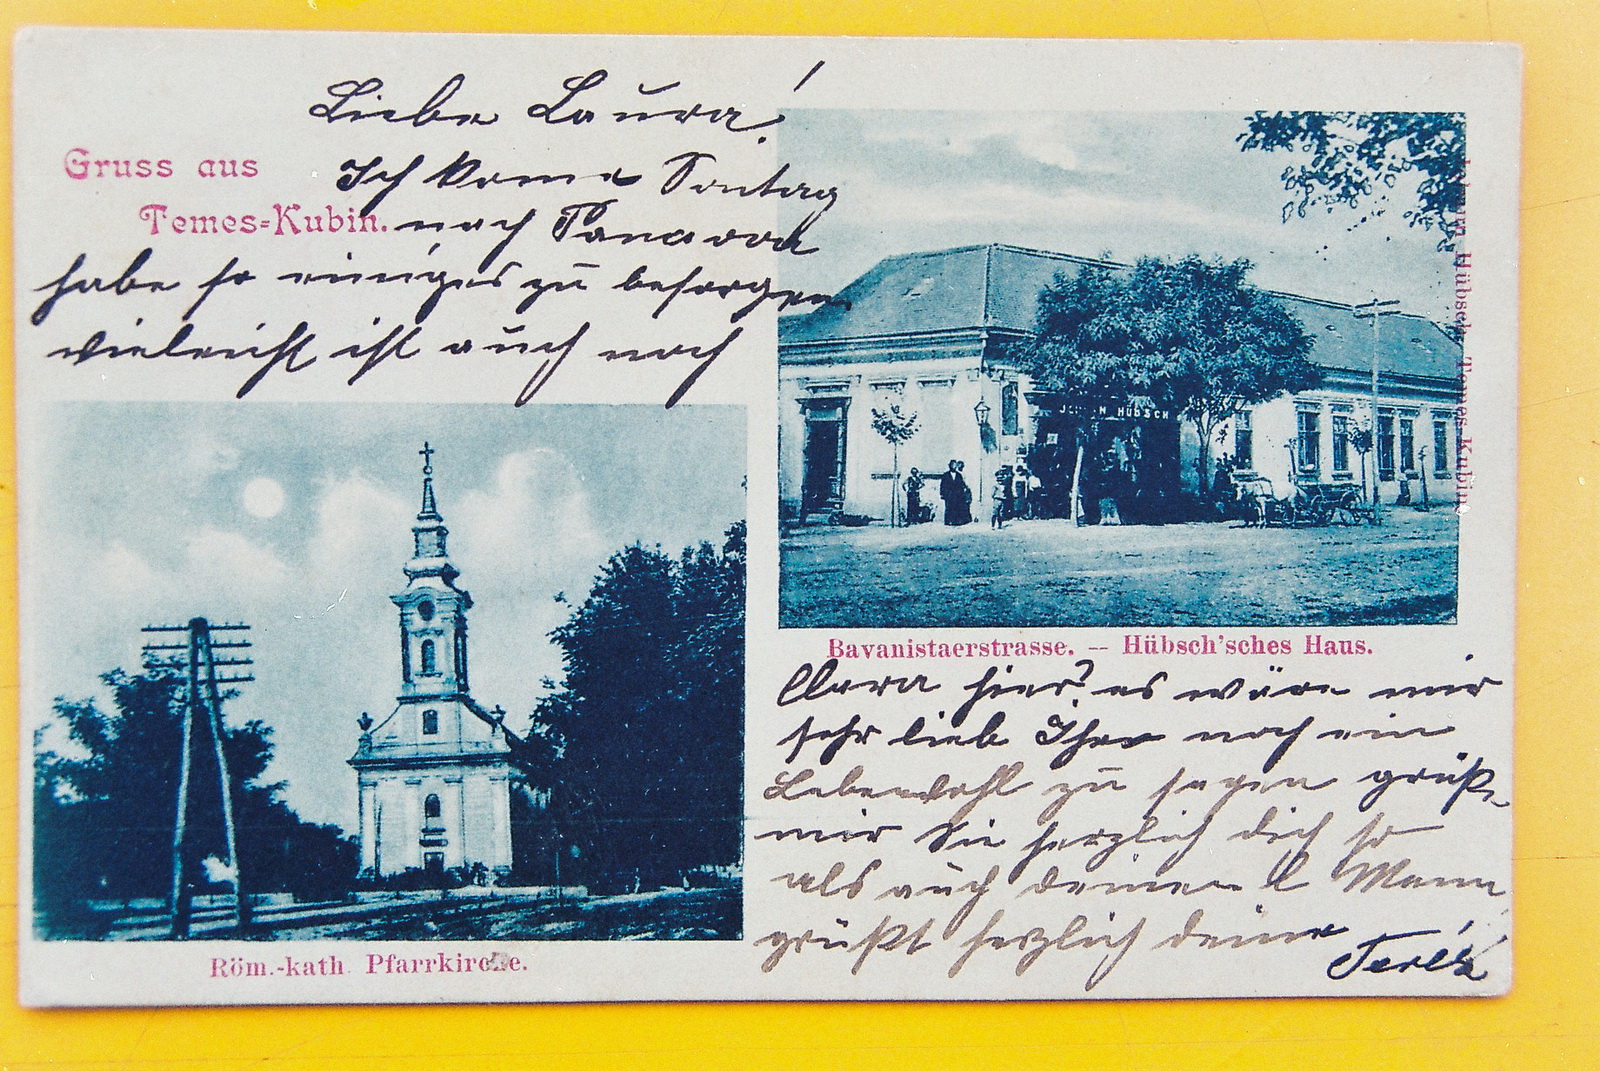 Liebe Laura!
Gruss aus
Temes=Kubin.
Ich kome Sontag
nach Pancsova
habe so einiges zu besorgen
vieleicht ist auch noch
JOHANN HÜBSCH
Johann Hübsch, Temes-Kubin.
Bavanistaerstrasse. — Hübsch'sches Haus.
Clara hier? es wäre mir
sehr lieb Ihr noch ein
Lebewohl zu sagen grüße
mir Sie herzlich dich so
als auch deinen l Mann
grüßt herzlich deine
Teréz
Röm.-kath. Pfarrkirche.